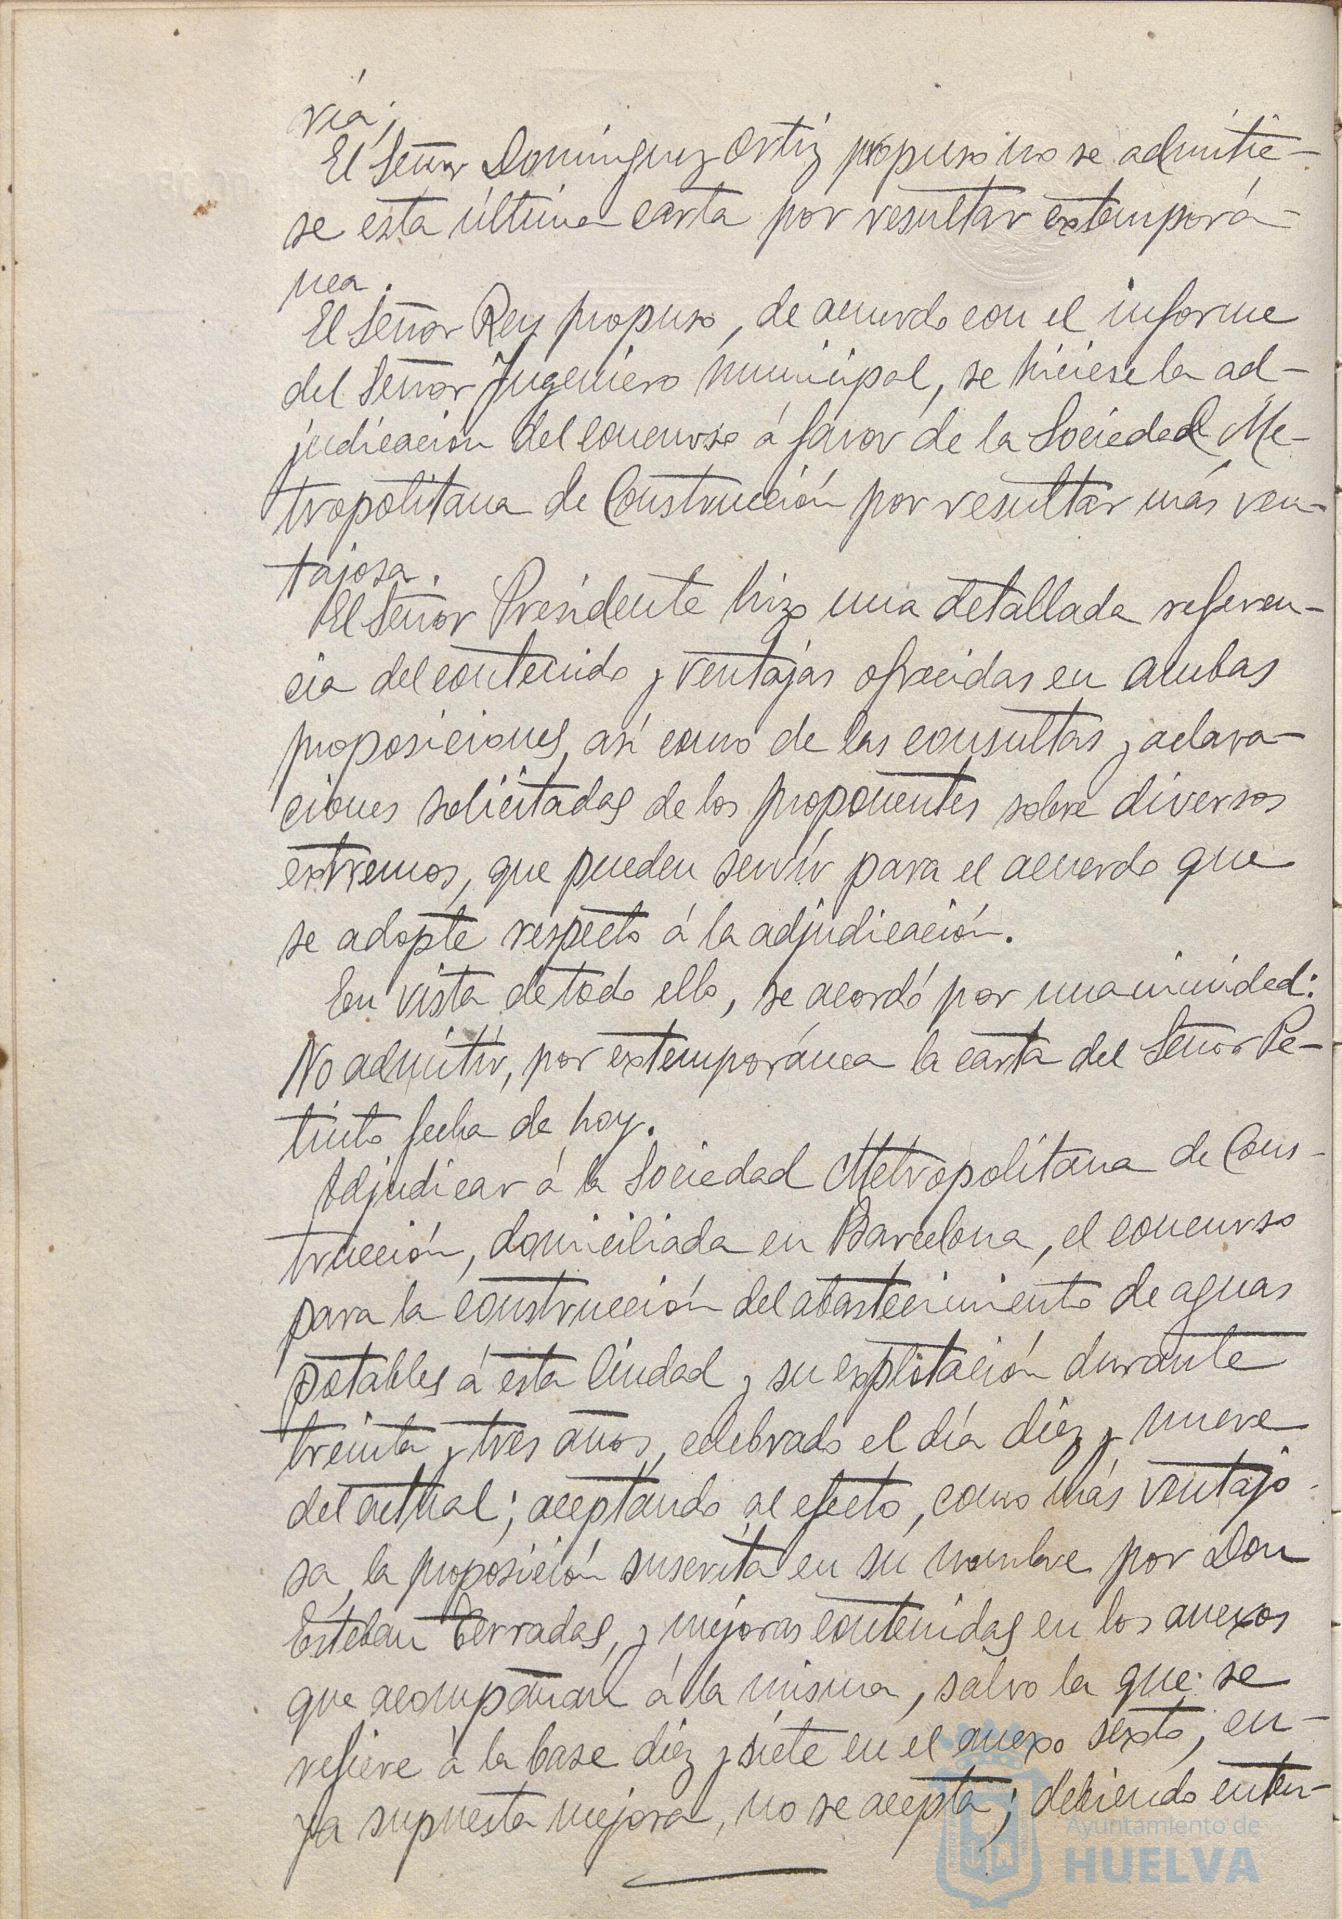 ría.
El Señor Domínguez Ortiz propuso no se admitie-
se esta última carta por resultar extemporá-
nea.
El Señor Rey propuso, de acuerdo con el informe
del Señor Ingeniero municipal, se hiciese la ad-
judicación del concurso á favor de la Sociedad Me-
tropolitana de Construcción por resultar más ven-
tajosa.
El Señor Presidente hizo una detallada referen-
cia del contenido y ventajas ofrecidas en ambas
proposiciones, así como de las consultas y aclara-
ciones solicitadas de los proponentes sobre diversos
extremos, que pueden servir para el acuerdo que
se adopte respecto á la adjudicación.
En vista de todo ello, se acordó por unanimidad:
No admitir, por extemporánea la carta del Señor Pe-
tinto fecha de hoy.
Adjudicar á la Sociedad Metropolitana de Cons-
trucción, domiciliada en Barcelona, el concurso
para la construcción del abastecimiento de aguas
potables á esta Ciudad y su explotación durante
treinta y tres años, celebrado el día diez y nueve
del actual; aceptando al efecto, como más ventajo-
sa, la proposición suscrita en su nombre por Don
Esteban Terradas, y mejoras contenidas en los anexos
que acompañan á la misma, salvo la que se
refiere á la base diez y siete en el anexo sexto, cu-
ya supuesta mejora, no se acepta; debiendo enten-
Ayuntamiento de
HUELVA